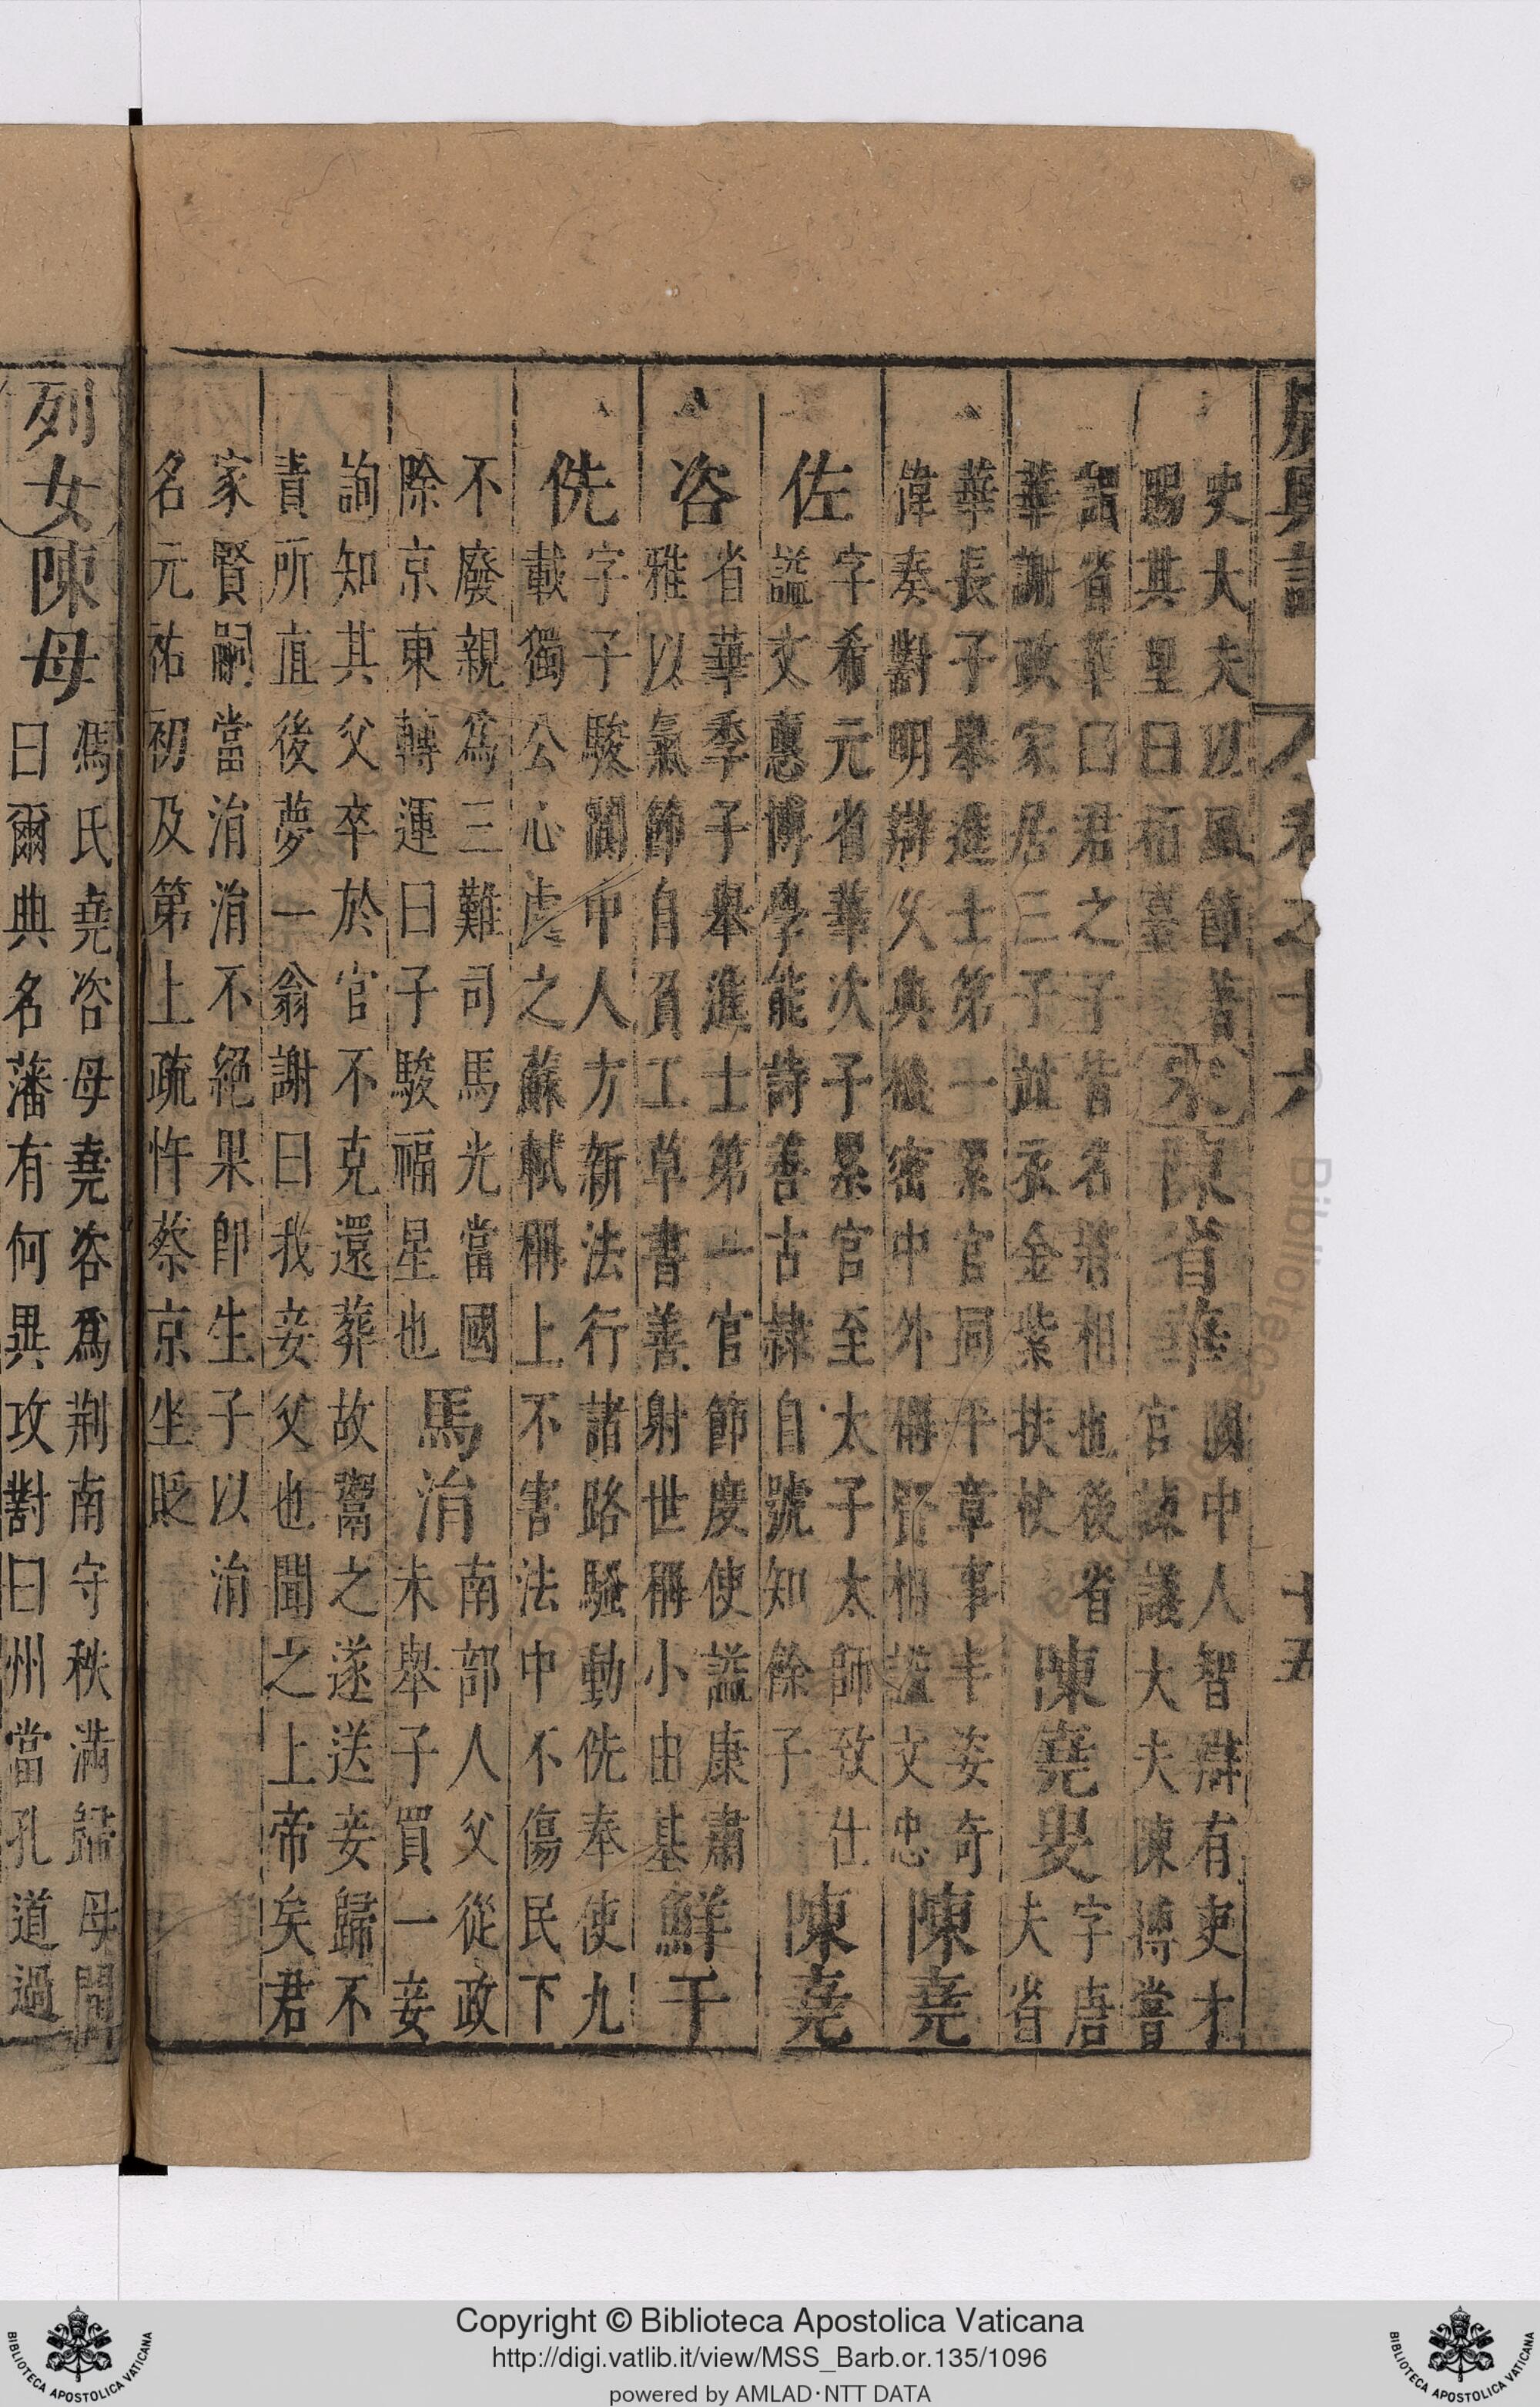 廣輿記 卷之十六 十五
史大夫以風節著
賜其里曰栢臺
宋 陳省華
閬中人智辯有吏才
官諫議大夫陳摶嘗
謂省華曰君之子皆名將相也後省
華謝政家居三子並衣金紫扶杖
陳堯叟
字唐
夫省
華長子舉進士第一累官同平章事丰姿奇
偉奏對明辯父典機密中外稱賢相諡文忠
陳堯
佐
字希元省華次子累官至太子太師致仕
諡文惠博學能詩善古隸自號知餘子
陳堯
咨
省華季子舉進士第一官節度使諡康肅
雅以氣節自負工草書善射世稱小由基
鮮于
侁
字子駿閬中人方新法行諸路騷動侁奉使九
載獨公心處之蘇軾稱上不害法中不傷民下
不廢親為三難司馬光當國
除京東轉運曰子駿福星也
馬涓
南部人父從政
未舉子買一妾
詢知其父卒於官不克還葬故鬻之遂送妾歸不
責所直後夢一翁謝曰我妾父也聞之上帝矣君
家賢嗣當涓涓不絕果即生子以涓
名元祐初及第上疏忤蔡京坐貶
列女 陳母
馮氏堯咨母堯咨為荆南守秩滿歸母問
曰爾典名藩有何異攻對曰州當孔道過
Copyright © Biblioteca Apostolica Vaticana
http://digi.vatlib.it/view/MSS_Barb.or.135/1096
powered by AMLAD·NTT DATA
BIBLIOTECA APOSTOLICA VATICANA
BIBLIOTECA APOSTOLICA VATICANA